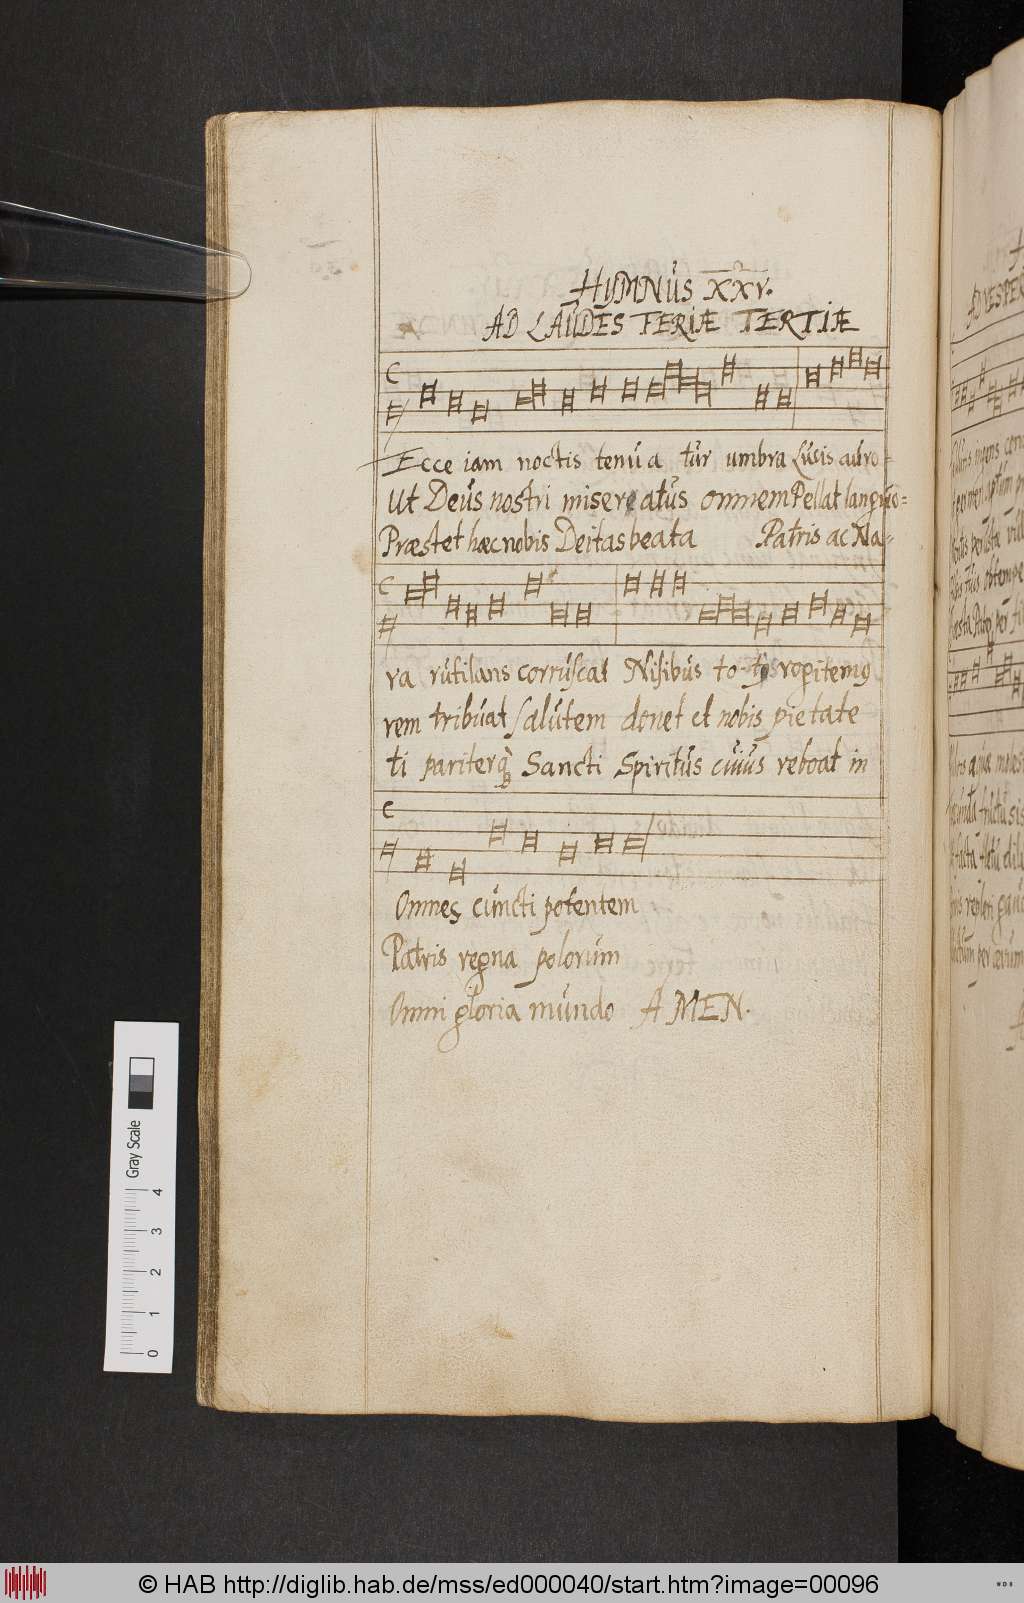 HYMNUS XXV.
AD LAUDES FERIÆ TERTIÆ
C
Ecce iam noctis tenu a tur umbra Lusis auro-
Ut Deus nostri miseratus omnem Pellat languo-
Præstet hæc nobis Deitas beata Patris ac Na-
C
ra rutilans corruscat Nisibus to rogitemq
rem tribuat salutem donet et nobis pietate
ti pariterq Sancti Spiritus cuius reboat in
C
Omnes cuncti potentem
Patris regna polorum
Omni gloria mundo AMEN.
Gray Scale
4
3
2
1
0
© HAB http://diglib.hab.de/mss/ed000040/start.htm?image=00096